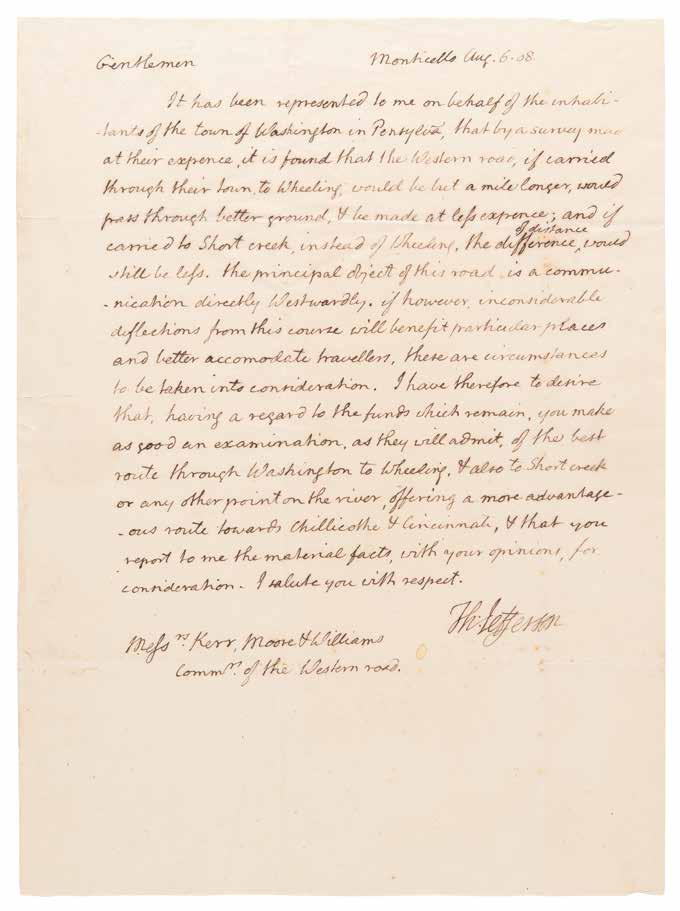 Gentlemen Monticello Aug. 6. 08.
It has been represented to me on behalf of the inhabi-
-tants of the town of Washington in Pensylva, that by a survey made
at their expence, it is found that the Western road, if carried
through their town, to Wheeling, would be but a mile longer, would
pass through better ground, & be made at less expence; and if
carried to Short creek, instead of Wheeling, the difference of distance, would
still be less. the principal object of this road is a commu-
-nication directly Westwardly. if however inconsiderable
deflections from this course will benefit particular places
and better accomodate travellers, these are circumstances
to be taken into consideration. I have therefore to desire
that, having a regard to the funds which remain, you make
as good an examination, as they will admit, of the best
route through Washington to Wheeling, & also to Short creek
or any other point on the river, offering a more advantage-
-ous route towards Chillicothe & Cincinnati, & that you
report to me the material facts, with your opinions, for
consideration. I salute you with respect.
Th: Jefferson
Messrs. Kerr, Moore & Williams
Commrs. of the Western road.